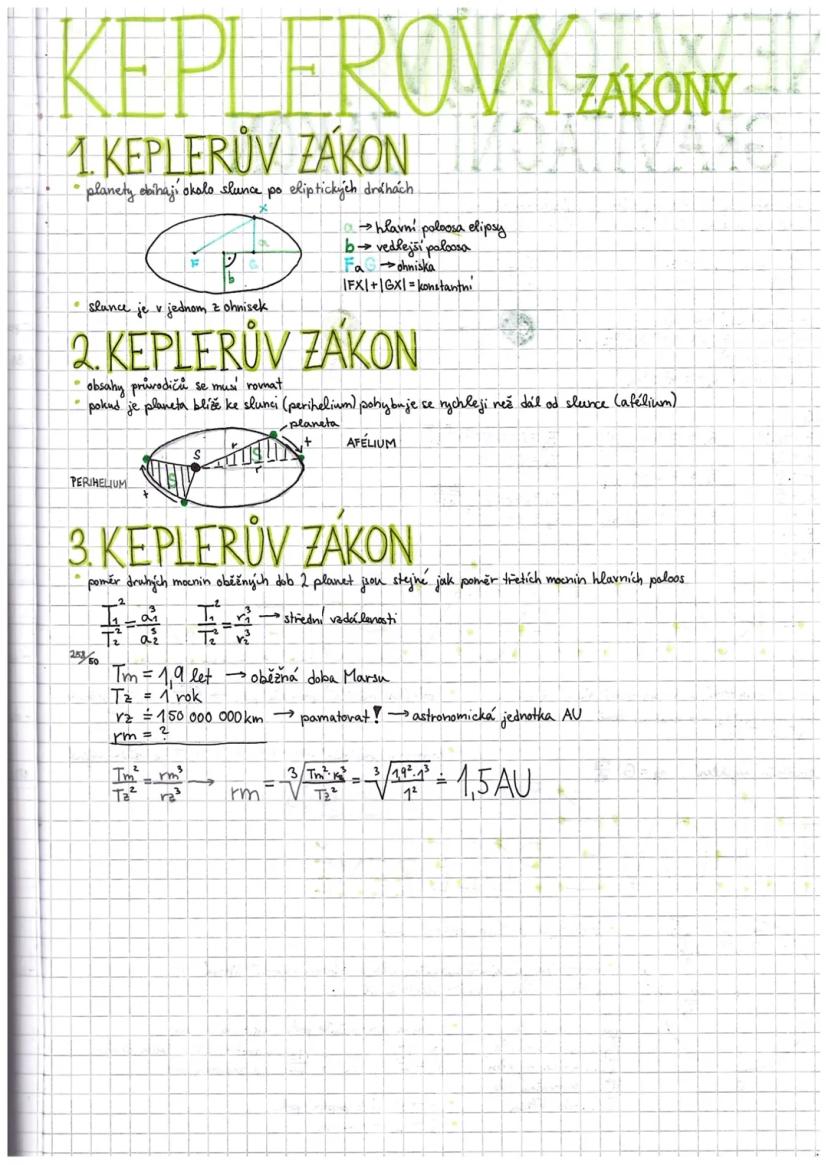 KEPLEROVY ZÁKONY
1. KEPLERŮV ZÁKON
• planety obíhají okolo slunce po eliptických drahách
X
F G a b
a → hlavní poloosa elipsy
b → vedlejší poloosa
F a G → ohniska
|FX| + |GX| = konstantní
• slunce je v jednom z ohnisek
2. KEPLERŮV ZÁKON
• obsahy průvodičů se musí rovnat
• pokud je planeta blíže ke slunci (perihelium) pohybuje se rychleji než dál od slunce (afélium)
planeta
S r S t AFÉLIUM
r
PERIHELIUM S t
3. KEPLERŮV ZÁKON
• poměr druhých mocnin oběžných dob 2 planet jsou stejné jak poměr třetích mocnin hlavních poloos
T₁²/T₂² = a₁³/a₂³ T₁²/T₂² = r₁³/r₂³ → střední vzdálenosti
Tm = 1,9 let → oběžná doba Marsu
Tz = 1 rok
rz ≐ 150 000 000 km → pamatovat! → astronomická jednotka AU
rm = ?
Tm²/Tz² = rm³/rz³ → rm = ∛(Tm²·rz³/Tz²) = ∛(1,9²·1³/1²) ≐ 1,5 AU